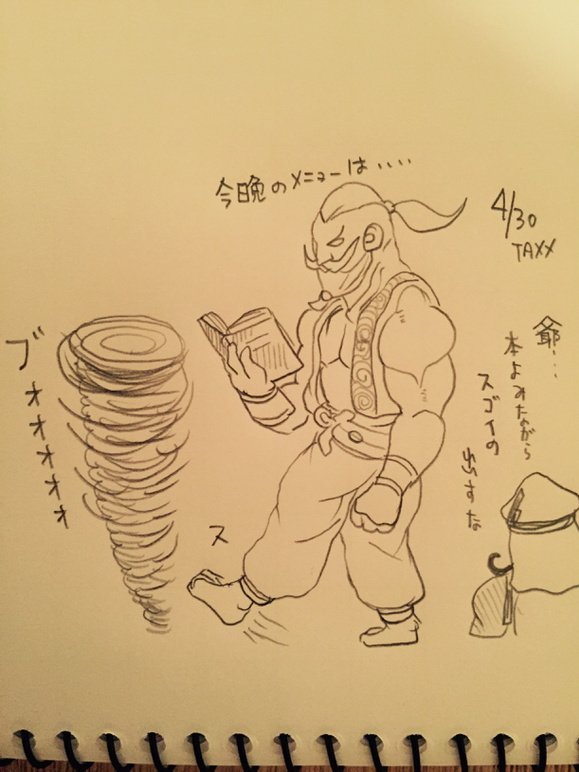 今晩のメニューは‥‥
4/30
TAXX
爺‥
本よみながら
スゴイの
出すな
ブオオオオオ
ス